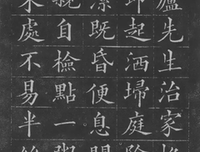 廬先生治家格
即起洒埽庭除
潔既昏便息關
親自檢點一粥
來處不易半